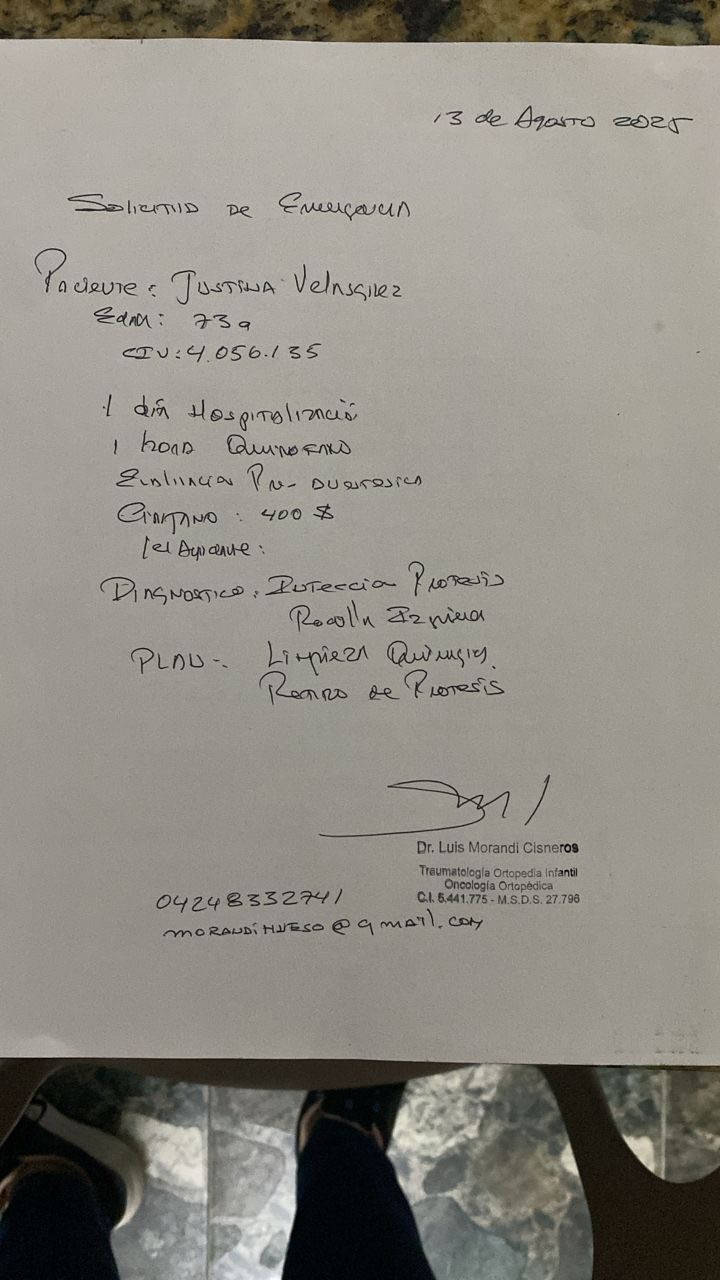 13 de Agosto 2025
Solicitud de Emergencia
Paciente: Justina Velasquez
Edad: 73a
CIV: 4.056.135
1 día Hospitalizació
1 hora Quirofano
Evaluacion Pre-anestesica
Cirujano: 400 $
1er Ayudante:
Diagnostico: Infeccion Protesis
Rodilla Izquierda
PLAN-. Limpieza Quirurgica.
Retiro de Protesis
Dr. Luis Morandi Cisneros
Traumatología Ortopedia Infantil
Oncología Ortopédica
C.I. 5.441.775 - M.S.D.S. 27.796
04248332741
morandihueso@gmail.com